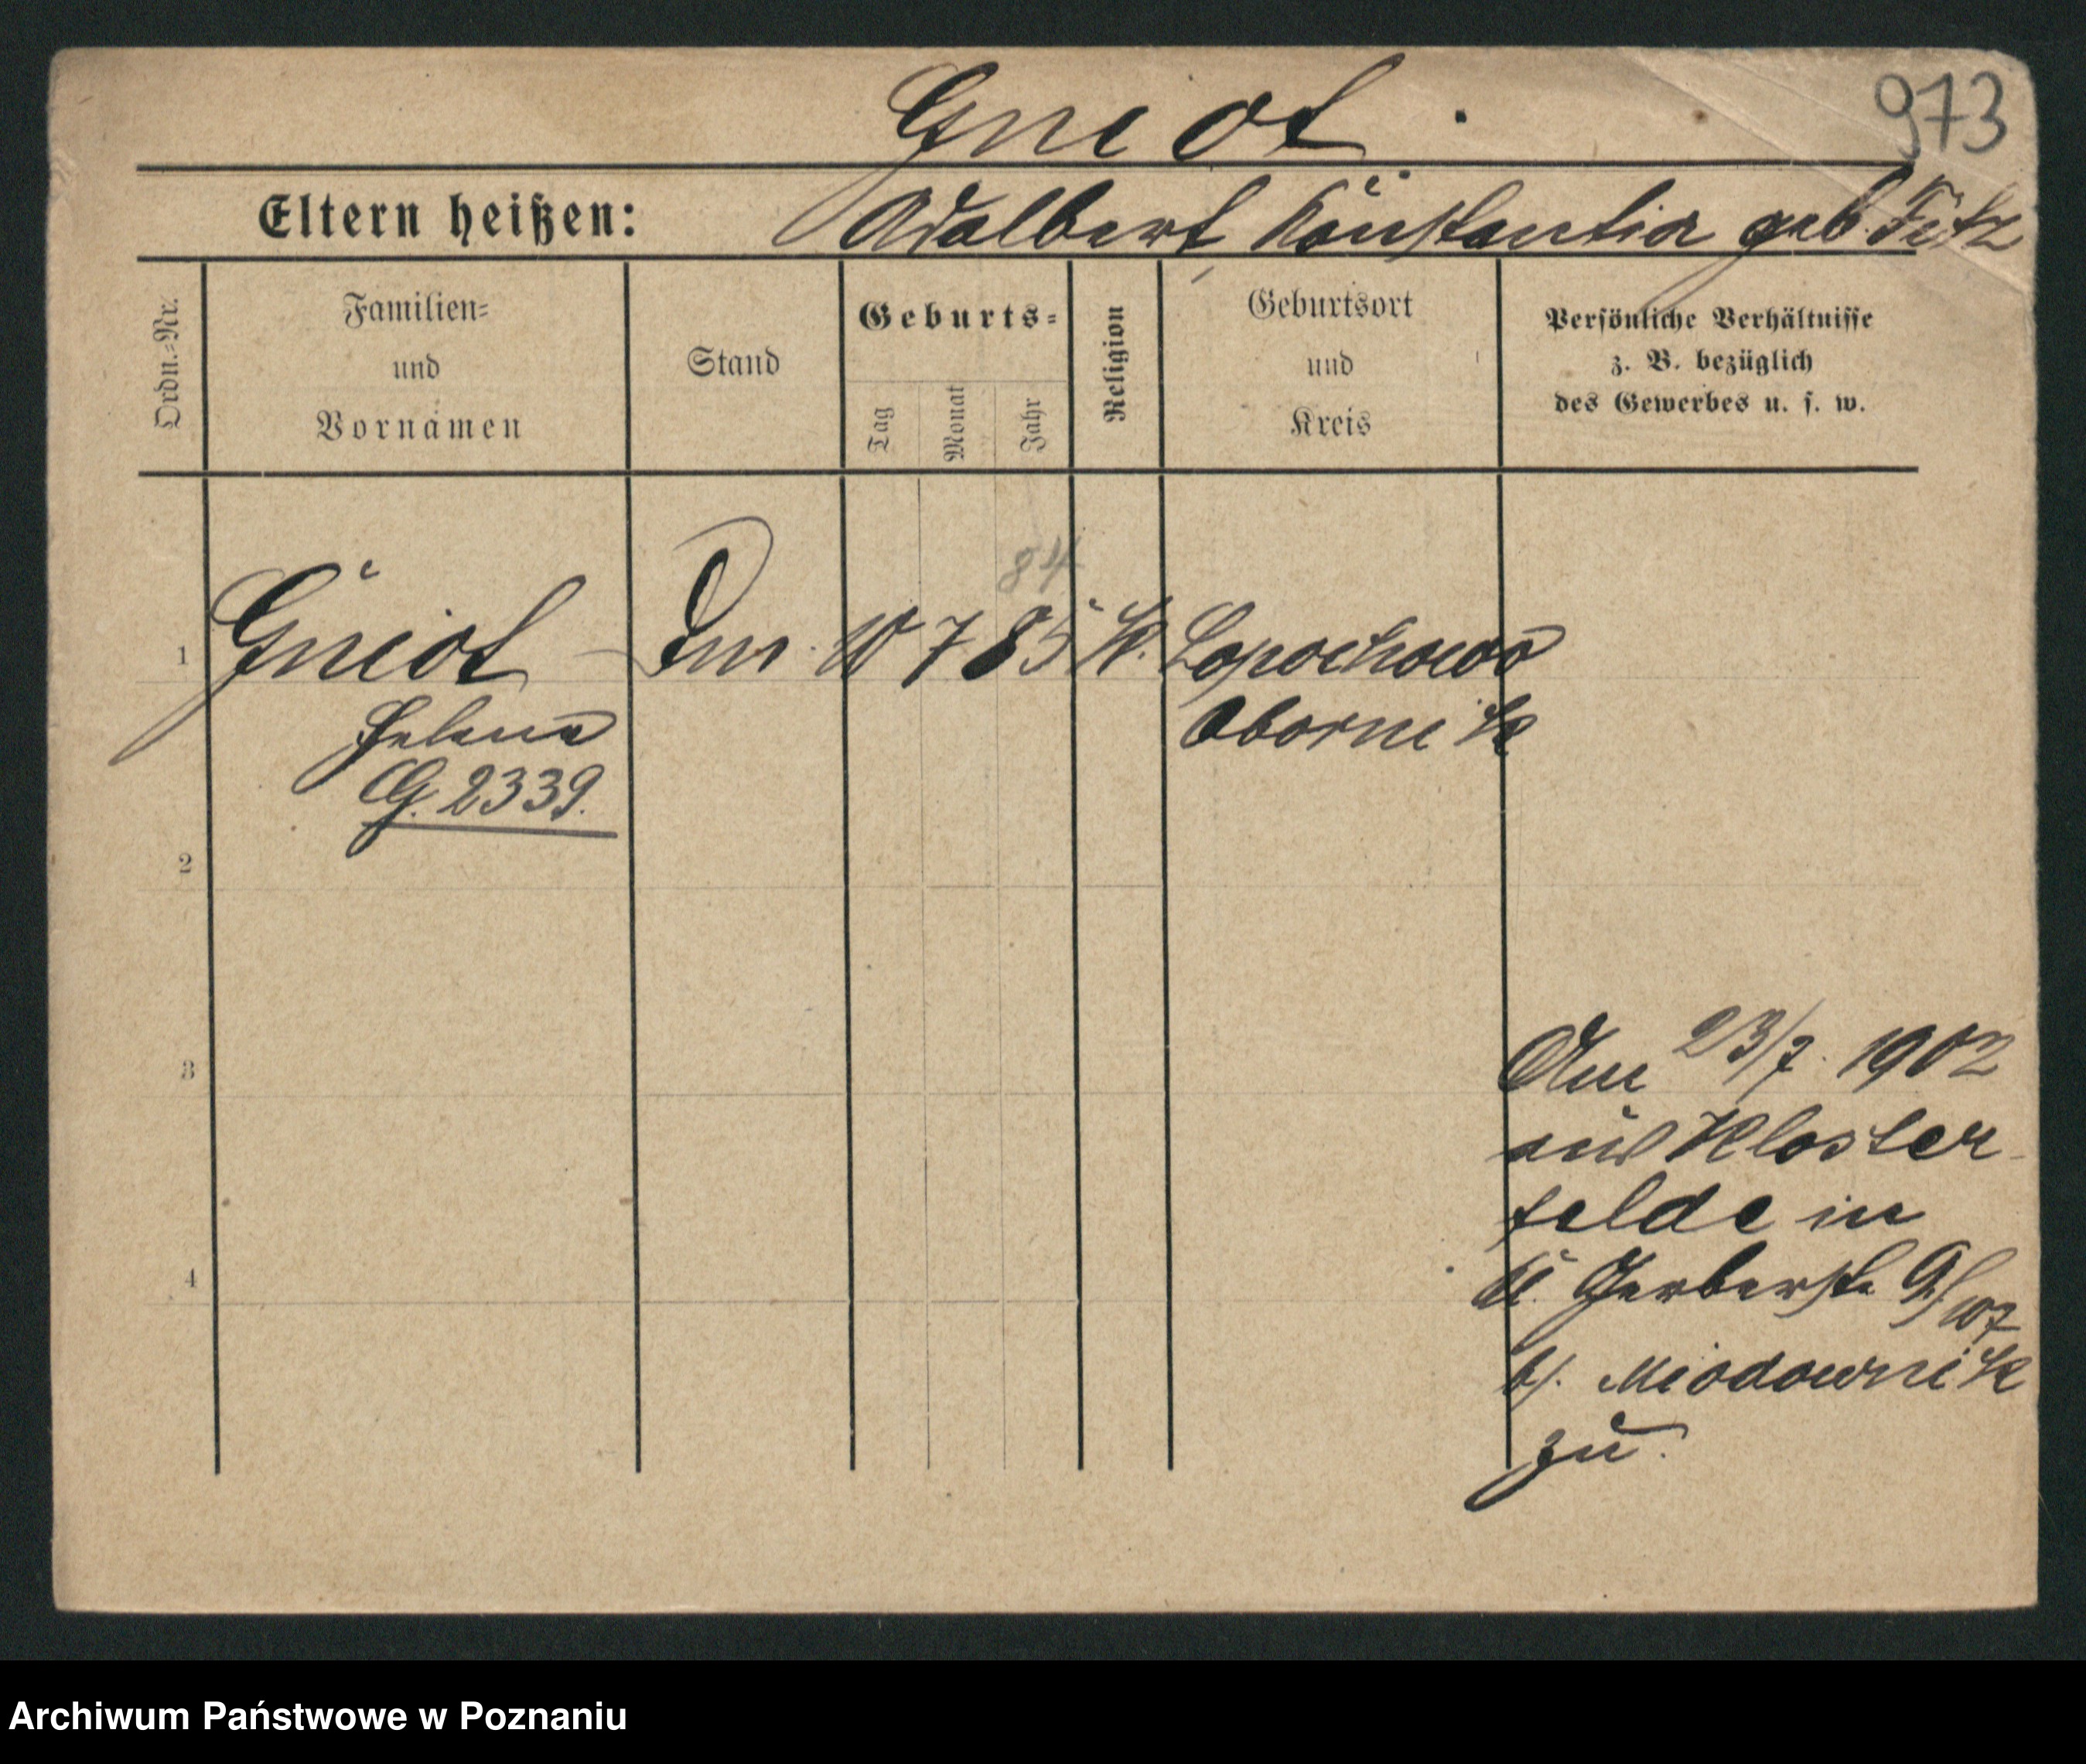 Gniot.
973
Eltern heißen: Adalbert Konstantia geb. Fitz
Ordn.-Nr.
Familien-
und
Vornamen
Stand
Geburts-
Tag
Monat
Jahr
Religion
Geburtsort
und
Kreis
Persönliche Verhältnisse
z. B. bezüglich
des Gewerbes u. s. w.
84
1 Gniot 10 7 85 K. Lopochowo
Helena Obornik
G. 2339.
2
3
Am 23/7. 1902
aus Kloster-
felde in
4
Kl. Gerberstr. 9/107
b/. Miodownik
zu.
Archiwum Państwowe w Poznaniu